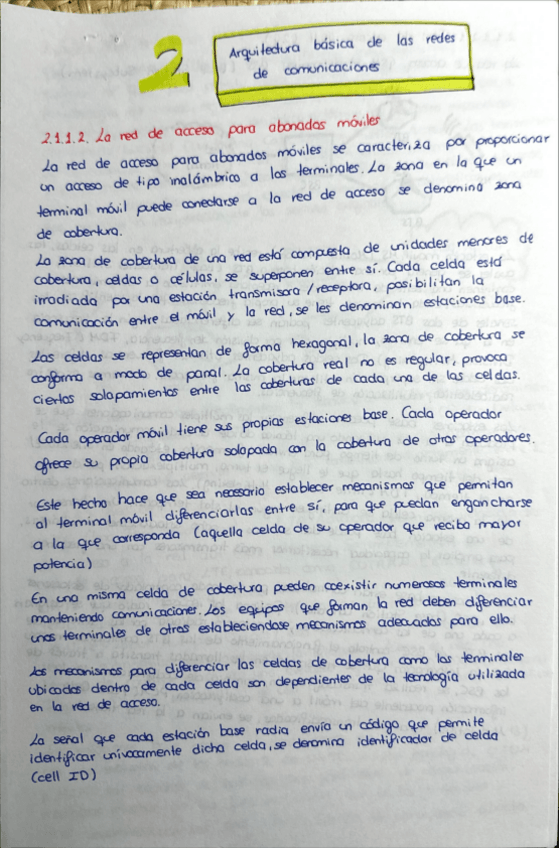 2
Arquitectura básica de las redes
de comunicaciones
2.1.1.2. La red de acceso para abonados móviles
La red de acceso para abonados móviles se caracteriza por proporcionar
un acceso de tipo inalámbrico a los terminales. La zona en la que un
terminal móvil puede conectarse a la red de acceso se denomina zona
de cobertura.
La zona de cobertura de una red está compuesta de unidades menores de
cobertura, celdas o células, se superponen entre sí. Cada celda está
irradiada por una estación transmisora/receptora, posibilitan la
comunicación entre el móvil y la red, se les denominan estaciones base.
Las celdas se representan de forma hexagonal, la zona de cobertura se
conforma a modo de panal. La cobertura real no es regular, provoca
ciertos solapamientos entre las coberturas de cada una de las celdas.
Cada operador móvil tiene sus propias estaciones base. Cada operador
ofrece su propia cobertura solapada con la cobertura de otros operadores.
Este hecho hace que sea necesario establecer mecanismos que permitan
al terminal móvil diferenciarlas entre sí, para que puedan engancharse
a la que corresponda (aquella celda de su operador que reciba mayor
potencia)
En una misma celda de cobertura pueden coexistir numerosos terminales
manteniendo comunicaciones. Los equipos que forman la red deben diferenciar
unos terminales de otros estableciendose mecanismos adecuados para ello.
Los mecanismos para diferenciar las celdas de cobertura como los terminales
ubicados dentro de cada celda son dependientes de la tecnología utilizada
en la red de acceso.
La señal que cada estación base radia envía un código que permite
identificar unívocamente dicha celda, se denomina identificador de celda
(cell ID)